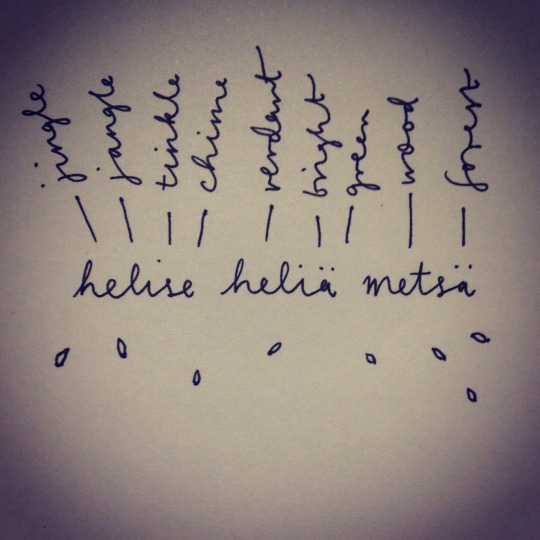 jingle
jangle
tinkle
chime
verdant
bright
green
wood
forest
helise heliä metsä